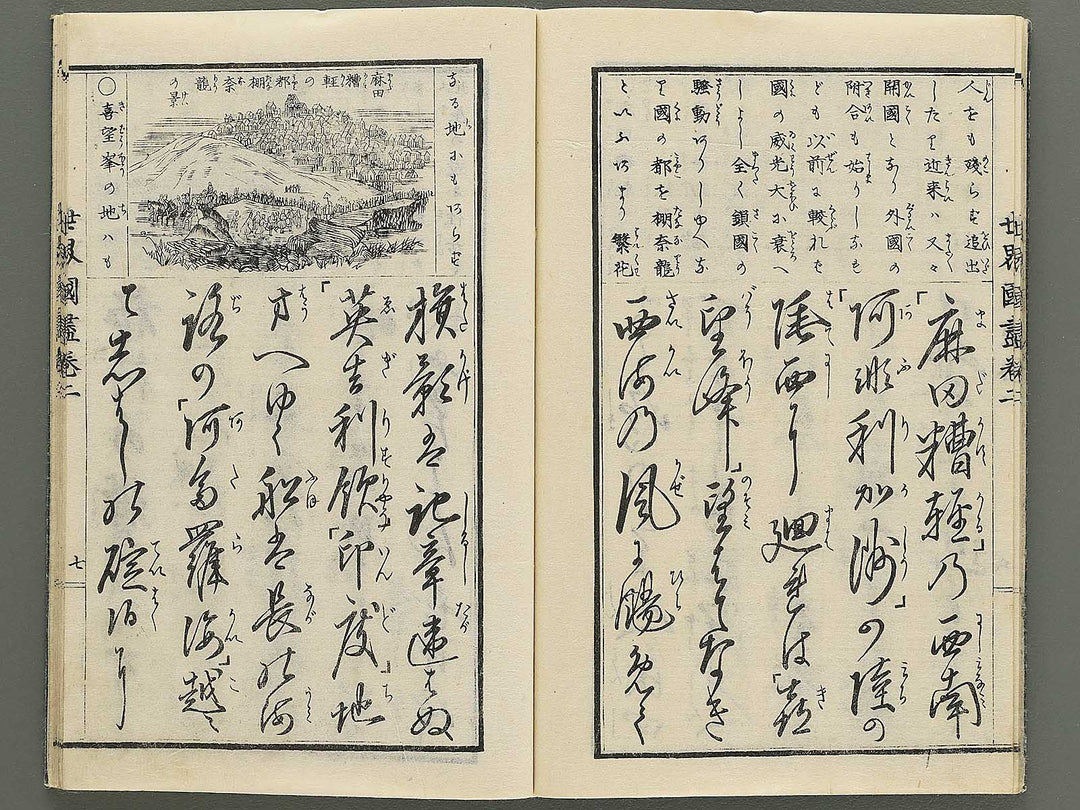 人をも殘らず追出
したり近来ハ又々
開國となり外國の
附合も始りしなれ
ども以前に較れば
國の威光大に衰へ
しよし全く鎖國の
騒動ありしゆへな
り國の都を棚奈龍
といふあまり繁花
「麻田糟輕」乃西南
「阿非利加洲」の陸の
西より廻れは「喜
望峰」望もなき
西海の風に
世界國盡卷二
なる地にもあらず
麻田糟輕の都棚奈龍
の景
○喜望峯の地ハも
旗影も記章違はぬ
英吉利領「印度」地
方へゆく船も長の海
路の「阿多羅海」越
て志ばしの碇泊り
世界國盡卷二
七